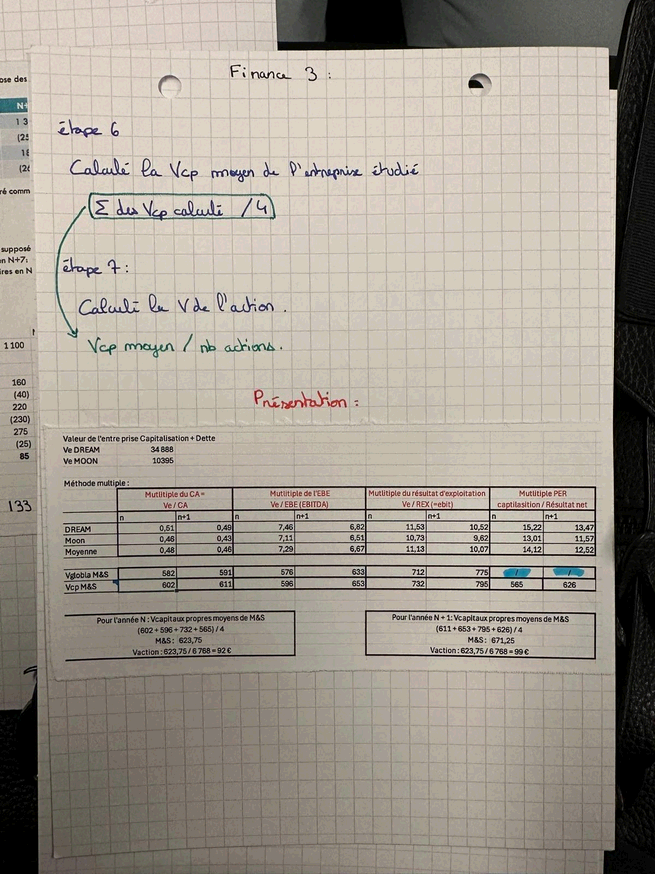 ose des
N+
1 3
(25
18
(26
ré comm
supposé
en N+7:
ires en N
1 100
160
(40)
220
(230)
275
(25)
85
133
Finance 3 :
étape 6
Calculé la Vcp moyen de l'entreprise étudié
Σ des Vcp calculé / 4
étape 7 :
Calculé la V de l'action .
Vcp moyen / nb actions .
Présentation :
Valeur de l'entre prise Capitalisation + Dette
Ve DREAM 34 888
Ve MOON 10395
Méthode multiple :
Mutltiple du CA = Mutltiple de l'EBE Mutltiple du résultat d'exploitation Mutltiple PER
Ve / CA Ve / EBE (EBITDA) Ve / REX (=ebit) captilasition / Résultat net
n n+1 n n+1 n n+1 n n+1
DREAM 0,51 0,49 7,46 6,82 11,53 10,52 15,22 13,47
Moon 0,46 0,43 7,11 6,51 10,73 9,62 13,01 11,57
Moyenne 0,48 0,46 7,29 6,67 11,13 10,07 14,12 12,52
Vglobla M&S 582 591 576 633 712 775 / /
Vcp M&S 602 611 596 653 732 795 565 626
Pour l'année N : Vcapitaux propres moyens de M&S
(602 + 596 + 732 + 565) / 4
M&S : 623,75
Vaction : 623,75 / 6 768 = 92 €
Pour l'année N + 1 : Vcpaitaux propres moyens de M&S
(611 + 653 + 795 + 626) / 4
M&S : 671,25
Vaction : 623,75 / 6 768 = 99 €